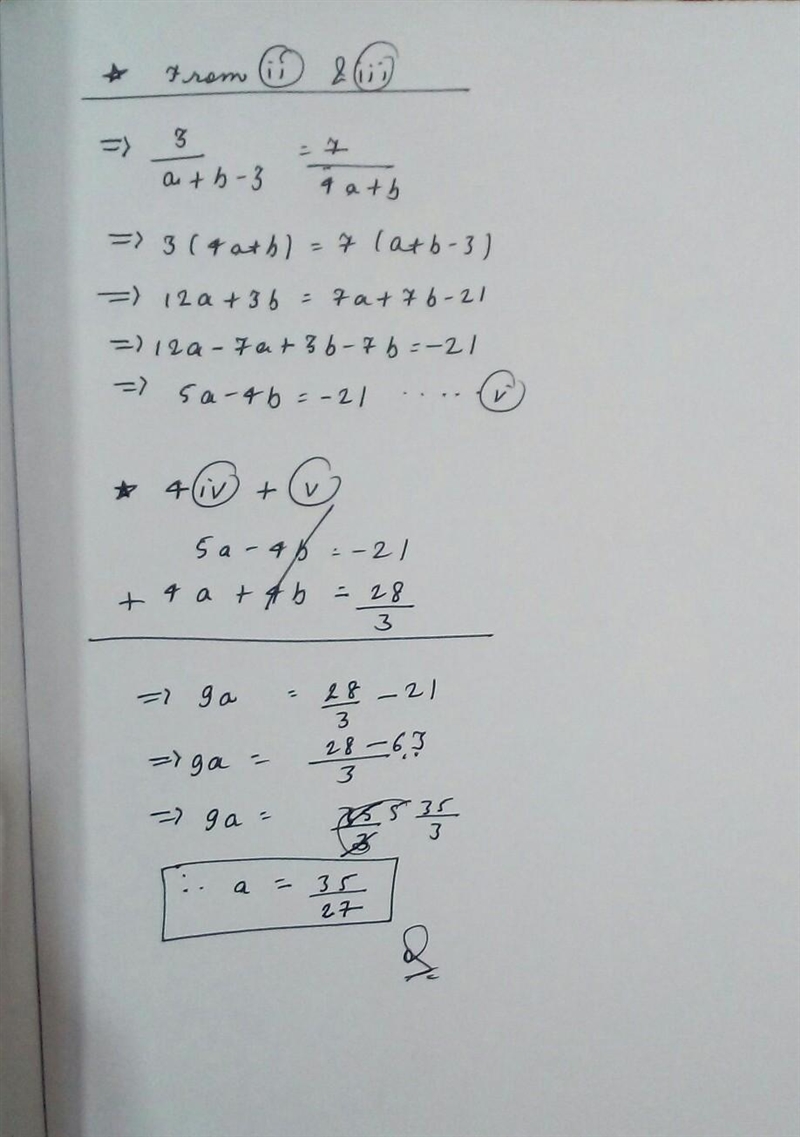 ★ From (ii) & (iii)
=> 3/(a+b-3) = 7/(4a+b)
=> 3(4a+b) = 7(a+b-3)
=> 12a+3b = 7a+7b-21
=> 12a-7a+3b-7b=-21
=> 5a-4b=-21 ..... (v)
★ 4(iv) + (v)
5a-4b=-21
+ 4a+4b = 28/3
=> 9a = 28/3 - 21
=> 9a = (28-63)/3
=> 9a = 35/3
∴ a = 35/27